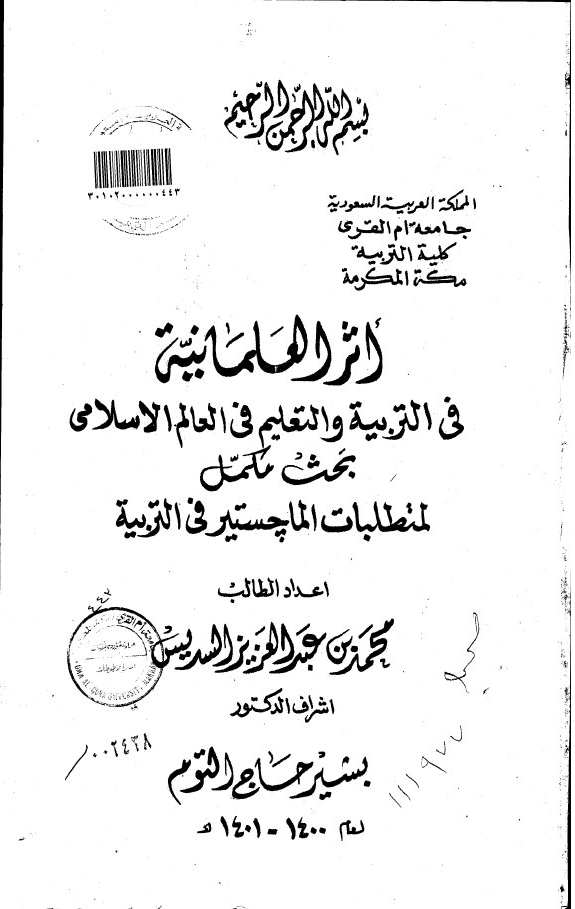 بسم الله الرحمن الرحيم
٣٠١٠٢٠٠٠٠٠٠٤٤٣
المملكة العربية السعودية
جامعة ام القرى
كلية التربية
مكة المكرمة
أثر العلمانية
فى التربية والتعليم فى العالم الاسلامى
بحث مكمل
لمتطلبات الماجستير فى التربية
اعداد الطالب
٤٤٣
محمد بن عبد العزيز السديس
اشراف الدكتور
٠٠٢٤٣٨
بشير حاج التوم
لعام ١٤٠٠ - ١٤٠١ هـ